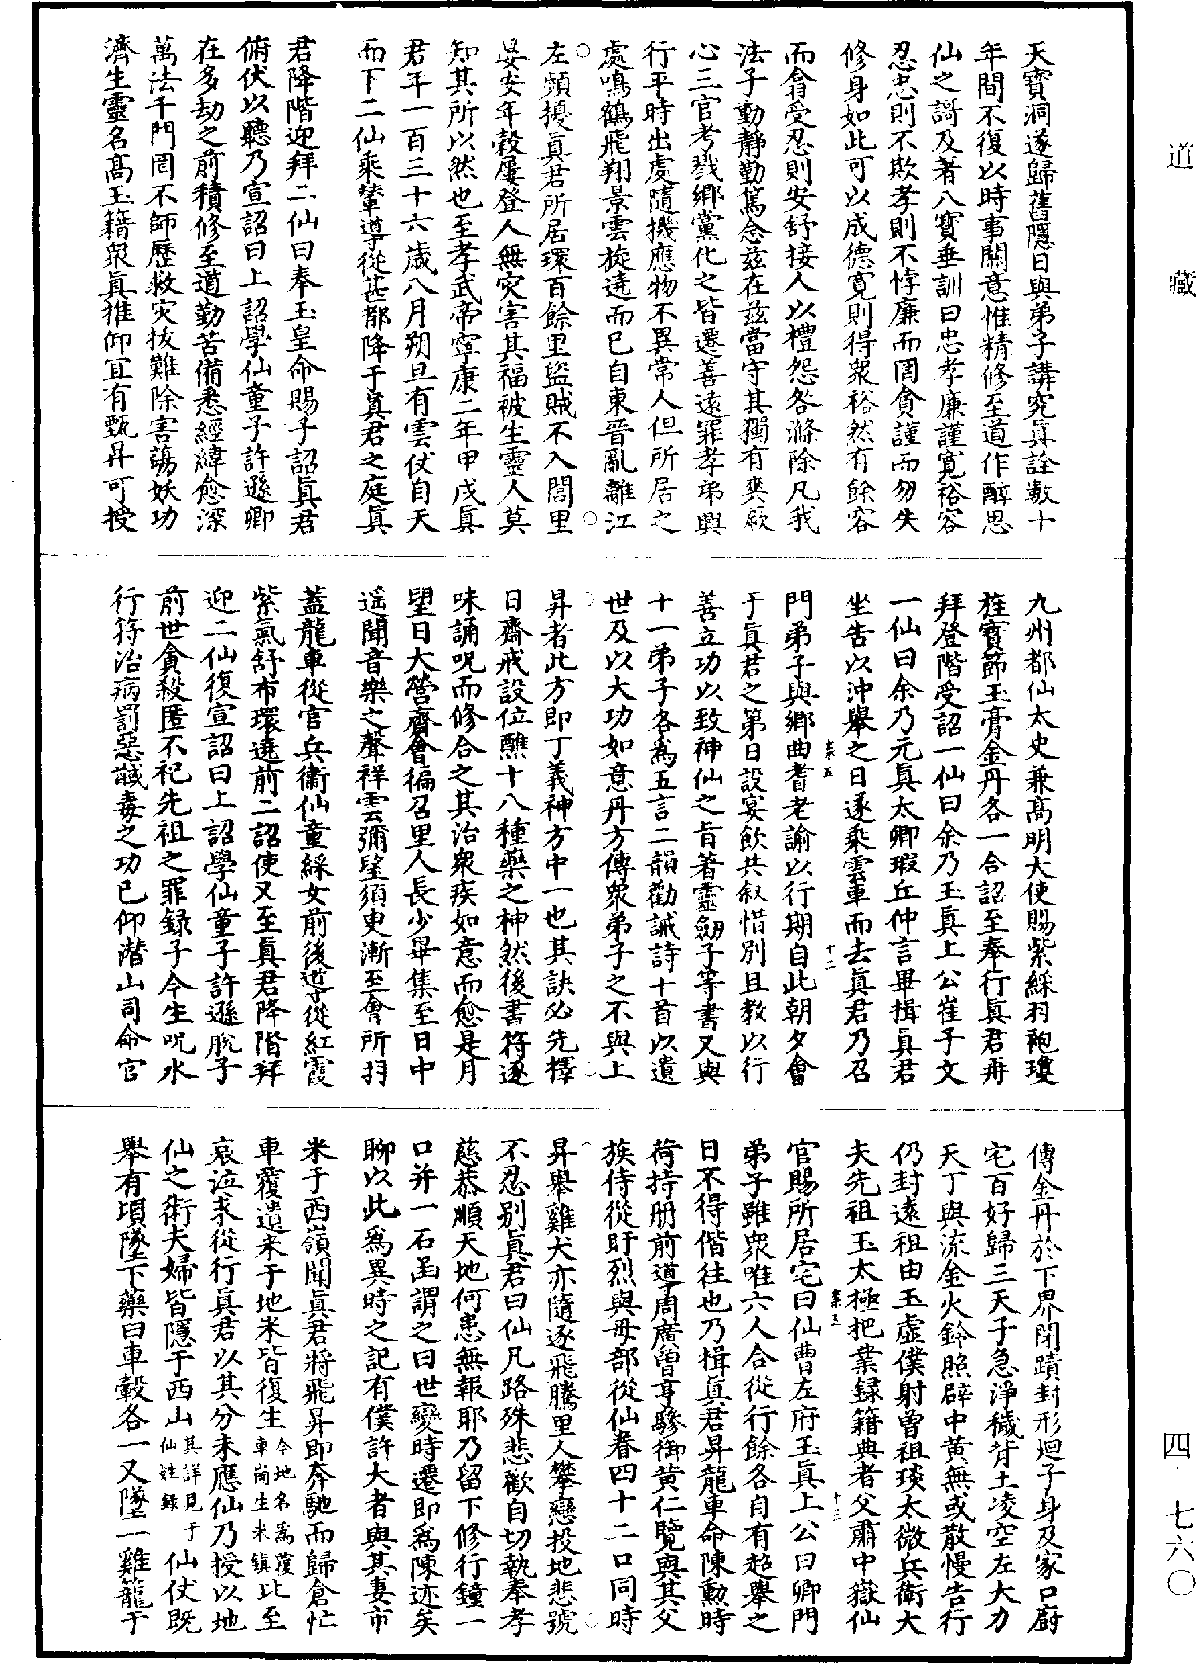 天寶洞遂歸舊隱日與弟子講究真詮數十
年間不復以時事關意惟精修至道作醉思
仙之謌及著八寶垂訓曰忠孝廉謹寬裕容
忍忠則不欺孝則不悖廉而罔貪謹而勿失
修身如此可以成德寬則得衆裕然有餘容
而翕受忍則安舒接人以禮怨咎滌除凡我
法子動靜勤篤念茲在茲當守其獨有爽厥
心三官考戮鄉黨化之皆遷善遠罪孝弟興
行平時出處隨機應物不異常人但所居之
處鳴鶴飛翔景雲旋遶而已自東晉亂離江
左頻擾真君所居環百餘里盜賊不入閭里
晏安年穀屢登人無灾害其福被生靈人莫
知其所以然也至孝武帝寧康二年甲戌真
君年一百三十六歲八月朔旦有雲仗自天
而下二仙乘輦導從甚都降于真君之庭真
君降階迎拜二仙曰奉玉皇命賜子詔真君
俯伏以聽乃宣詔曰上詔學仙童子許遜卿
在多劫之前積修至道勤苦備悉經緯愈深
萬法千門罔不師歷救灾拔難除害蕩妖功
濟生靈名高玉籍衆真推仰宜有甄昇可授
九州都仙太史兼高明大使賜紫綵羽袍瓊
旌寶節玉膏金丹各一合詔至奉行真君再
拜登階受詔一仙曰余乃玉真上公崔子文
一仙曰余乃元真太卿瑕丘仲言畢揖真君
坐告以沖舉之日遂乘雲車而去真君乃召
門弟子與鄉曲耆老諭以行期自此朝夕會
于真君之第日設宴飲共叙惜別且教以行
善立功以致神仙之旨著靈劒子等書又與
十一弟子各爲五言二韻勸誡詩十首以遺
世及以大功如意丹方傳衆弟子之不與上
昇者此方即丁義神方中一也其訣必先擇
日齋戒設位醮十八種藥之神然後書符逐
味誦呪而修合之其治衆疾如意而愈是月
望日大營齋會徧召里人長少畢集至日中
遥聞音樂之聲祥雲彌望須臾漸至會所羽
蓋龍車從官兵衞仙童綵女前後導從紅霞
紫氣舒布環遶前二詔使又至真君降階拜
迎二仙復宣詔曰上詔學仙童子許遜脫子
前世貪殺匿不祀先祖之罪録子今生呪水
行符治病罰惡馘毒之功已仰潛山司命官
傳金丹於下界閉蹟封形迴子身及家口厨
宅百好歸三天子急淨穢背土凌空左大力
天丁與流金火鈴照辟中黄無或散慢告行
仍封遠祖由玉虛僕射曾祖琰太微兵衛大
夫先祖玉太極把業録籍典者父肅中嶽仙
官賜所居宅曰仙曹左府玉真上公曰卿門
弟子雖衆唯六人合從行餘各自有超舉之
日不得偕往也乃揖真君昇龍車命陳勳時
荷持册前導周廣曾亨驂御黄仁覽與其父
族侍從盱烈與母部從仙眷四十二口同時
昇舉雞犬亦隨逐飛騰里人攀戀投地悲號
不忍别真君曰仙凡路殊悲歡自切執奉孝
慈恭順天地何患無報耶乃留下修行鐘一
口并一石函謂之曰世變時遷即爲陳迹矣
聊以此爲異時之記有僕許大者與其妻市
米于西嶺聞真君將飛昇即奔馳而歸倉忙
車覆遺米于地米皆復生今地名爲覆車崗生米鎮比至
哀泣求從行真君以其分未應仙乃授以地
仙之術夫婦皆隱于西山其詳見于仙姓録仙仗既
舉有頃墜下藥臼車轂各一又墜一雞籠于
道藏
四·七六〇